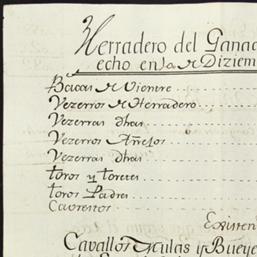 Herradero del Ganad
echo en la de Diziem
Bacas de Vientre
Vezerros de Herradero
Vezerras dhas
Vezerros Añejos
Vezerras dhas
toros y toretes
toros Padres
Cavrestos
Existen
Cavallos Mulas y Bueye